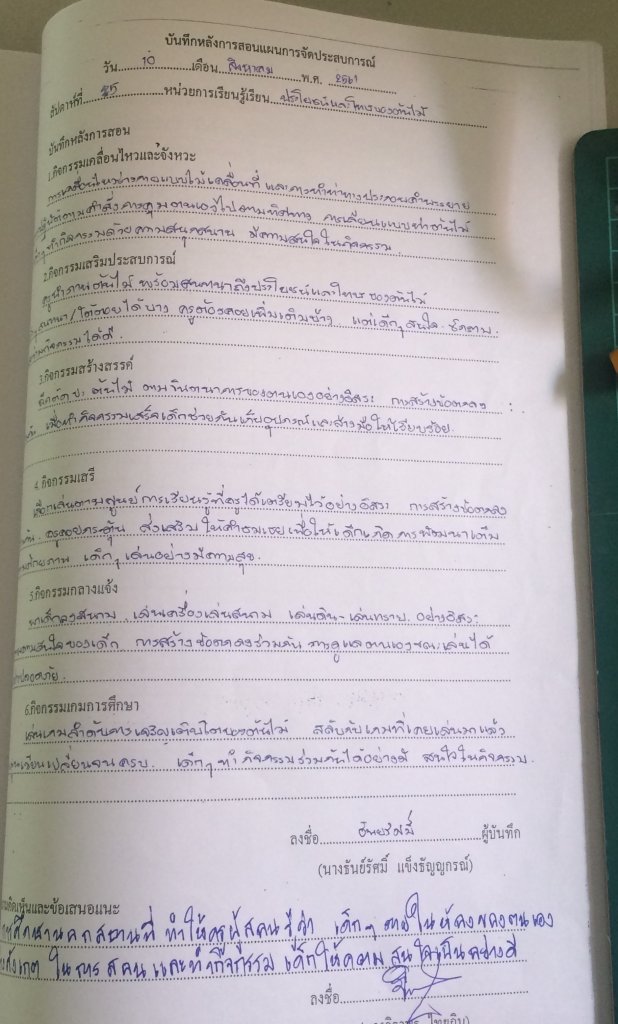 บันทึกหลังการสอนแผนการจัดประสบการณ์
วัน 10 เดือน สิงหาคม พ.ศ. 2561
สัปดาห์ที่ หน่วยการเรียนรู้เรียน ประโยชน์และโทษของต้นไม้
บันทึกหลังการสอน
1.กิจกรรมเคลื่อนไหวและจังหวะ
การเคลื่อนไหวร่างกายแบบไม่เคลื่อนที่ และการทำท่าทางประกอบคำบรรยาย
ตามคำสั่งควบคุมตนเองไปตามทิศทาง การเคลื่อนแบบท่าต้นไม้
ทำกิจกรรมด้วยความสนุกสนาน มีความสนใจในกิจกรรม.
2.กิจกรรมเสริมประสบการณ์
ครูนำภาพต้นไม้ พร้อมสนทนาถึงประโยชน์และโทษของต้นไม้
สนทนา/โต้ตอบได้บาง ครูต้องคอยเพิ่มเติมบ้าง แต่เด็กๆ สนใจ ซักถาม
ร่วมกิจกรรมได้ดี.
3.กิจกรรมสร้างสรรค์
ฉีกตัดปะ ต้นไม้ ตามจินตนาการของตนเองอย่างอิสระ การสร้างข้อตกลง
เมื่อทำกิจกรรมเสร็จเด็กช่วยกันเก็บอุปกรณ์และล้างมือให้เรียบร้อย.
4.กิจกรรมเสรี
เลือกเล่นตามศูนย์การเรียนรู้ที่ครูได้เตรียมไว้อย่างอิสระ การสร้างข้อตกลง
ครูคอยกระตุ้น ส่งเสริม ให้คำชมเชยเพื่อให้เด็กเกิดการพัฒนาเต็ม
ศักยภาพ เด็กๆ เล่นอย่างมีความสุข.
5.กิจกรรมกลางแจ้ง
พาเด็กลงสนาม เล่นเครื่องเล่นสนาม เล่นดิน-เล่นทราย อย่างอิสระ
ตามความสนใจของเด็ก การสร้างข้อตกลงร่วมกัน การดูแลตนเองขณะเล่นได้
ปลอดภัย.
6.กิจกรรมเกมการศึกษา
เล่นเกมลำดับการเจริญเติบโตของต้นไม้ สลับกับเกมที่เคยเล่นมาแล้ว
หมุนเวียนเปลี่ยนจนครบ. เด็กๆ ทำกิจกรรมร่วมกันได้อย่างดี สนใจในกิจกรรม.
ลงชื่อ ธันยรัศมิ์ ผู้บันทึก
(นางธันย์รัศมิ์ แข็งธัญญกรณ์)
ความคิดเห็นและข้อเสนอแนะ
ทำให้ครูผู้สอนรู้ว่า เด็กๆ ภายในห้องของตนเอง
สังเกต ในการสอนและทำกิจกรรม เด็กให้ความสนใจเป็นอย่างดี
ลงชื่อ